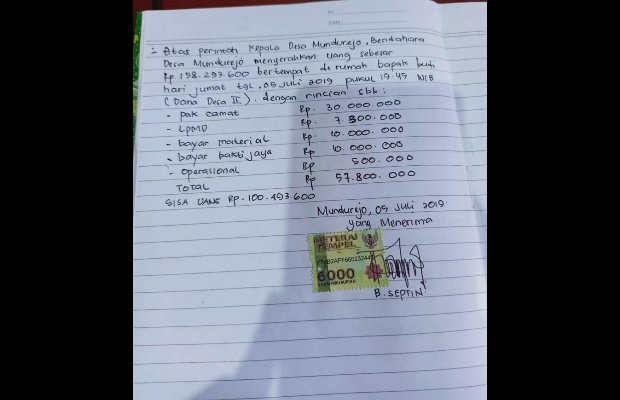 No
Date
- Atas perintah Kepala Desa Mundurejo, Bendahara
Desa Mundurejo menyerahkan uang sebesar
Rp 158.293.600 bertempat di rumah bapak budi
hari jumat tgl, 05 juli 2019 pukul 19.45 WIB
(Dana Desa II). dengan rincian sbb:
- pak camat Rp. 30.000.000
- LPMD Rp. 7.300.000
- bayar material Rp. 10.000.000
- bayar bakti jaya Rp 10.000.000
- Operasional Rp 500.000
TOTAL Rp 57.800.000
SISA UANG Rp. 100.493.600
Mundurejo, 05 Juli 2019
yang Menerima
METERAI
TEMPEL
6000
ENAM RIBU RUPIAH
B. SEPTIN